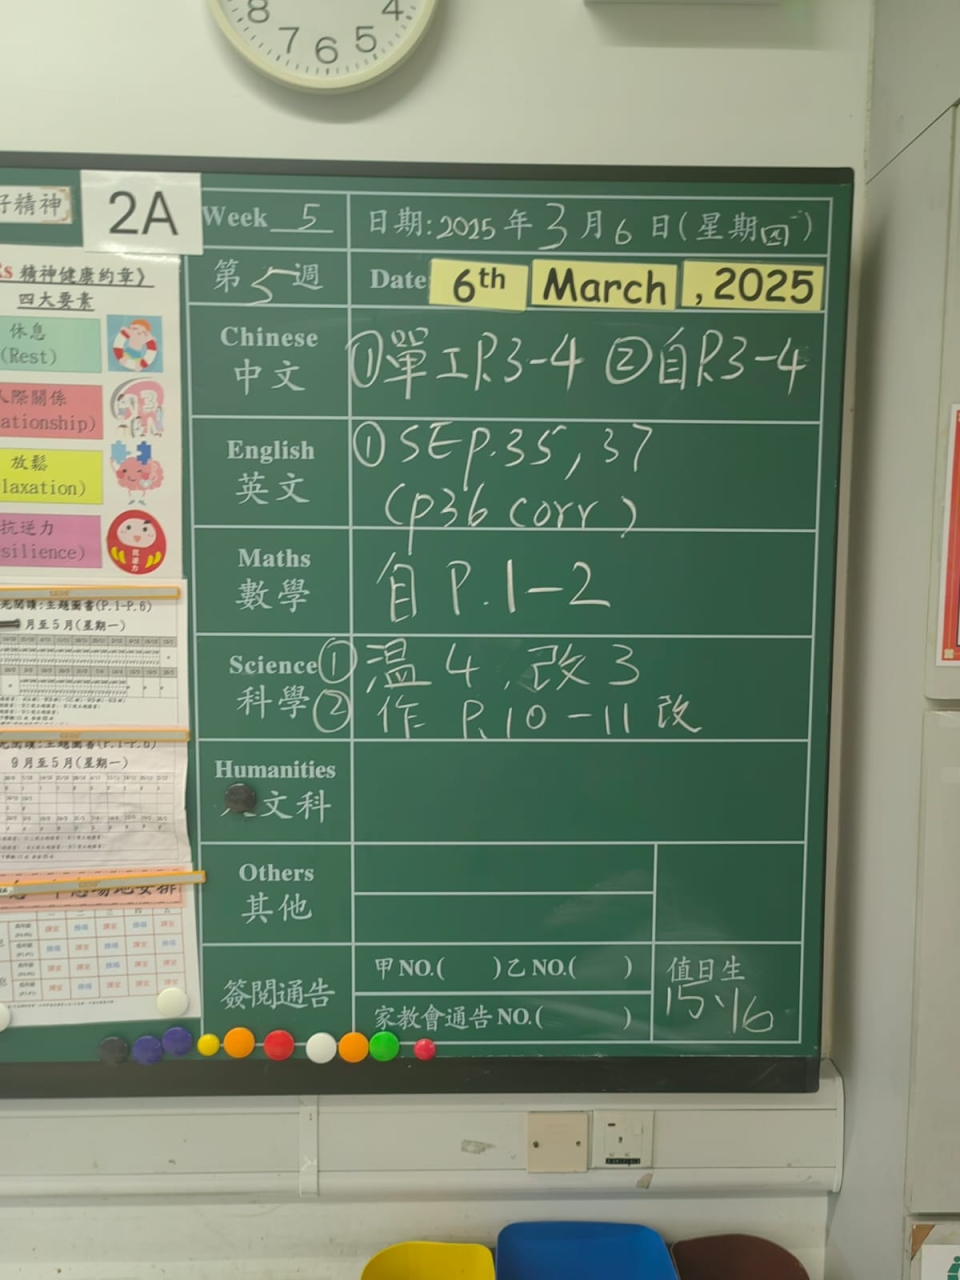 8 7 6 5 4
好精神
2A
Week 5
日期:2025年3月6日(星期四)
第5週
Date
6th March , 2025
精神健康約章》
四大要素
休息
(Rest)
人際關係
ationship)
放鬆
laxation)
抗逆力
silience)
抗逆力
Chinese
中文
①單工P.3-4 ②自P.3-4
English
英文
①SE p.35, 37
(p36 corr)
Maths
數學
自 P.1-2
Science
科學
①溫4, 改3
②作 P.10-11 改
Humanities
文科
Others
其他
簽閱通告
甲NO.( )乙NO.( )
家教會通告NO.( )
值日生
15、16
元閱讀:主題圖書(P.1-P.6)
月至5月(星期一)
9月至5月(星期一)